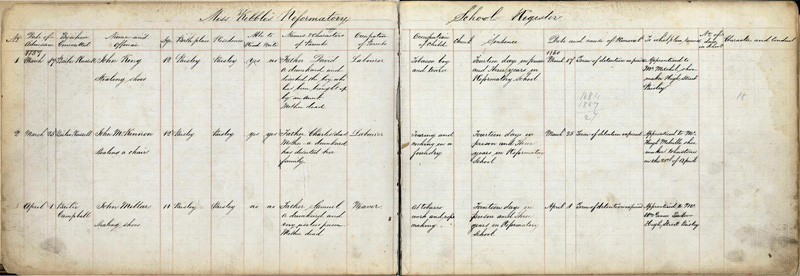 Miss Kibble's Reformatory School Register
No. Date of Admission By whom Convicted Name and Offence Age Birthplace Residence Able to Read Write Names & Characters of Parents Occupation of Parents Occupation of Child Church Sentence Date and cause of Removal To what place Character and Conduct
1 March John King
Stealing shoes
12 Paisley Paisley yes no
Father David
a drunkard, and
deserted the boy who
has been brought up
by an Aunt
Mother dead
Labourer
Tobacco boy
and tearer
Fourteen days in prison
and three years in
Reformatory School
1860
March 17 Term of detention expired
Apprenticed to
Mr Mitchell, shoe
maker High Street
Paisley
1884
1857
27
18
2 March 25 John McKinnon
Stealing a chair
12 Paisley Paisley yes yes
Father Charles dead
Mother a drunkard
has deserted her
family.
Labourer
Tearing and
working in a
foundry
Fourteen days in
prison and three
years in Reformatory
School
March 25 Term of detention expired
Apprenticed to Mr
Hugh
maker Johnstone
on the 20th of April
3 April 1 Campbell
John Millar
Stealing shoes
11 Paisley Paisley no no
Father Samuel
a drunkard, and
very poor
Mother dead
Weaver
At tobacco
work and rope
making
Fourteen days in
prison and three
years in Reformatory
School
April 1 Term of detention expired
Apprenticed to Mr
High Street Paisley